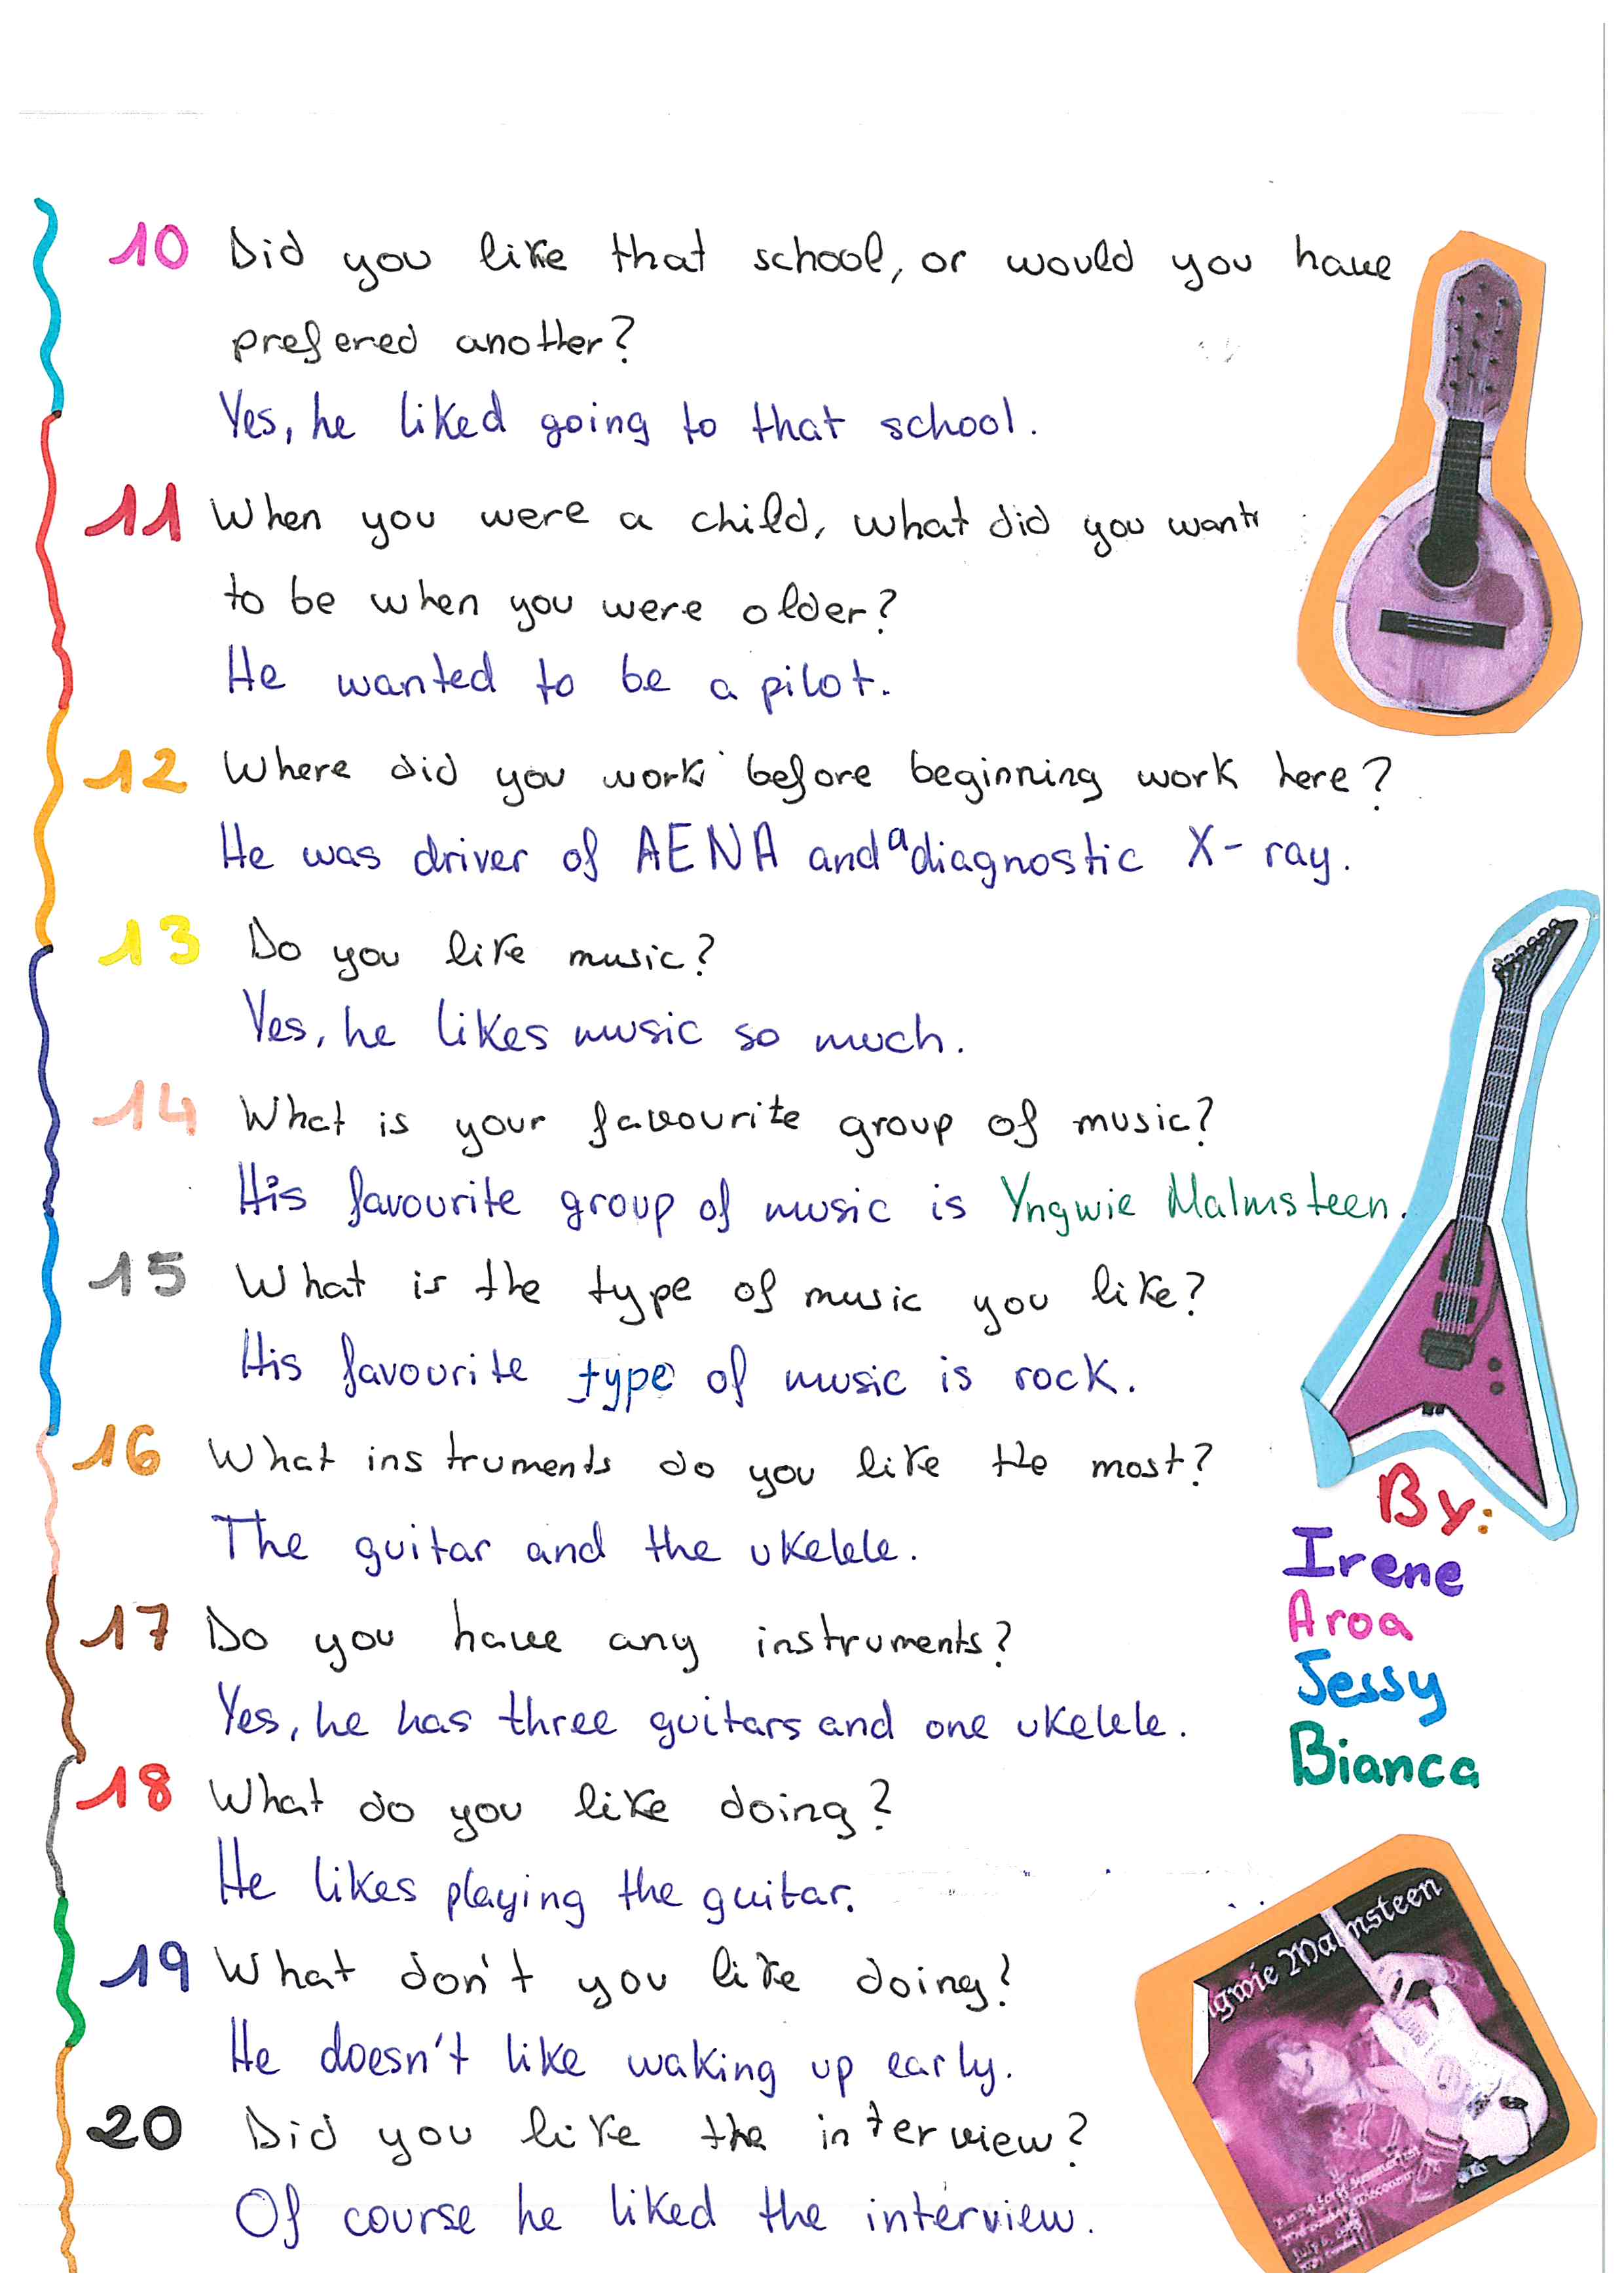 10 Did you like that school, or would you have
prefered another?
Yes, he liked going to that school.
11 When you were a child, what did you want
to be when you were older?
He wanted to be a pilot.
12 Where did you work before beginning work here?
He was driver of AENA and a diagnostic X-ray.
13 Do you like music?
Yes, he likes music so much.
14 What is your favourite group of music?
His favourite group of music is Yngwie Malmsteen.
15 What is the type of music you like?
His favourite type of music is rock.
16 What instruments do you like the most?
The guitar and the ukelele.
17 Do you have any instruments?
Yes, he has three guitars and one ukelele.
18 What do you like doing?
He likes playing the guitar.
19 What don't you like doing?
He doesn't like waking up early.
20 Did you like the interview?
Of course he liked the interview.
By:
Irene
Aroa
Jessy
Bianca
gwie Malmsteen